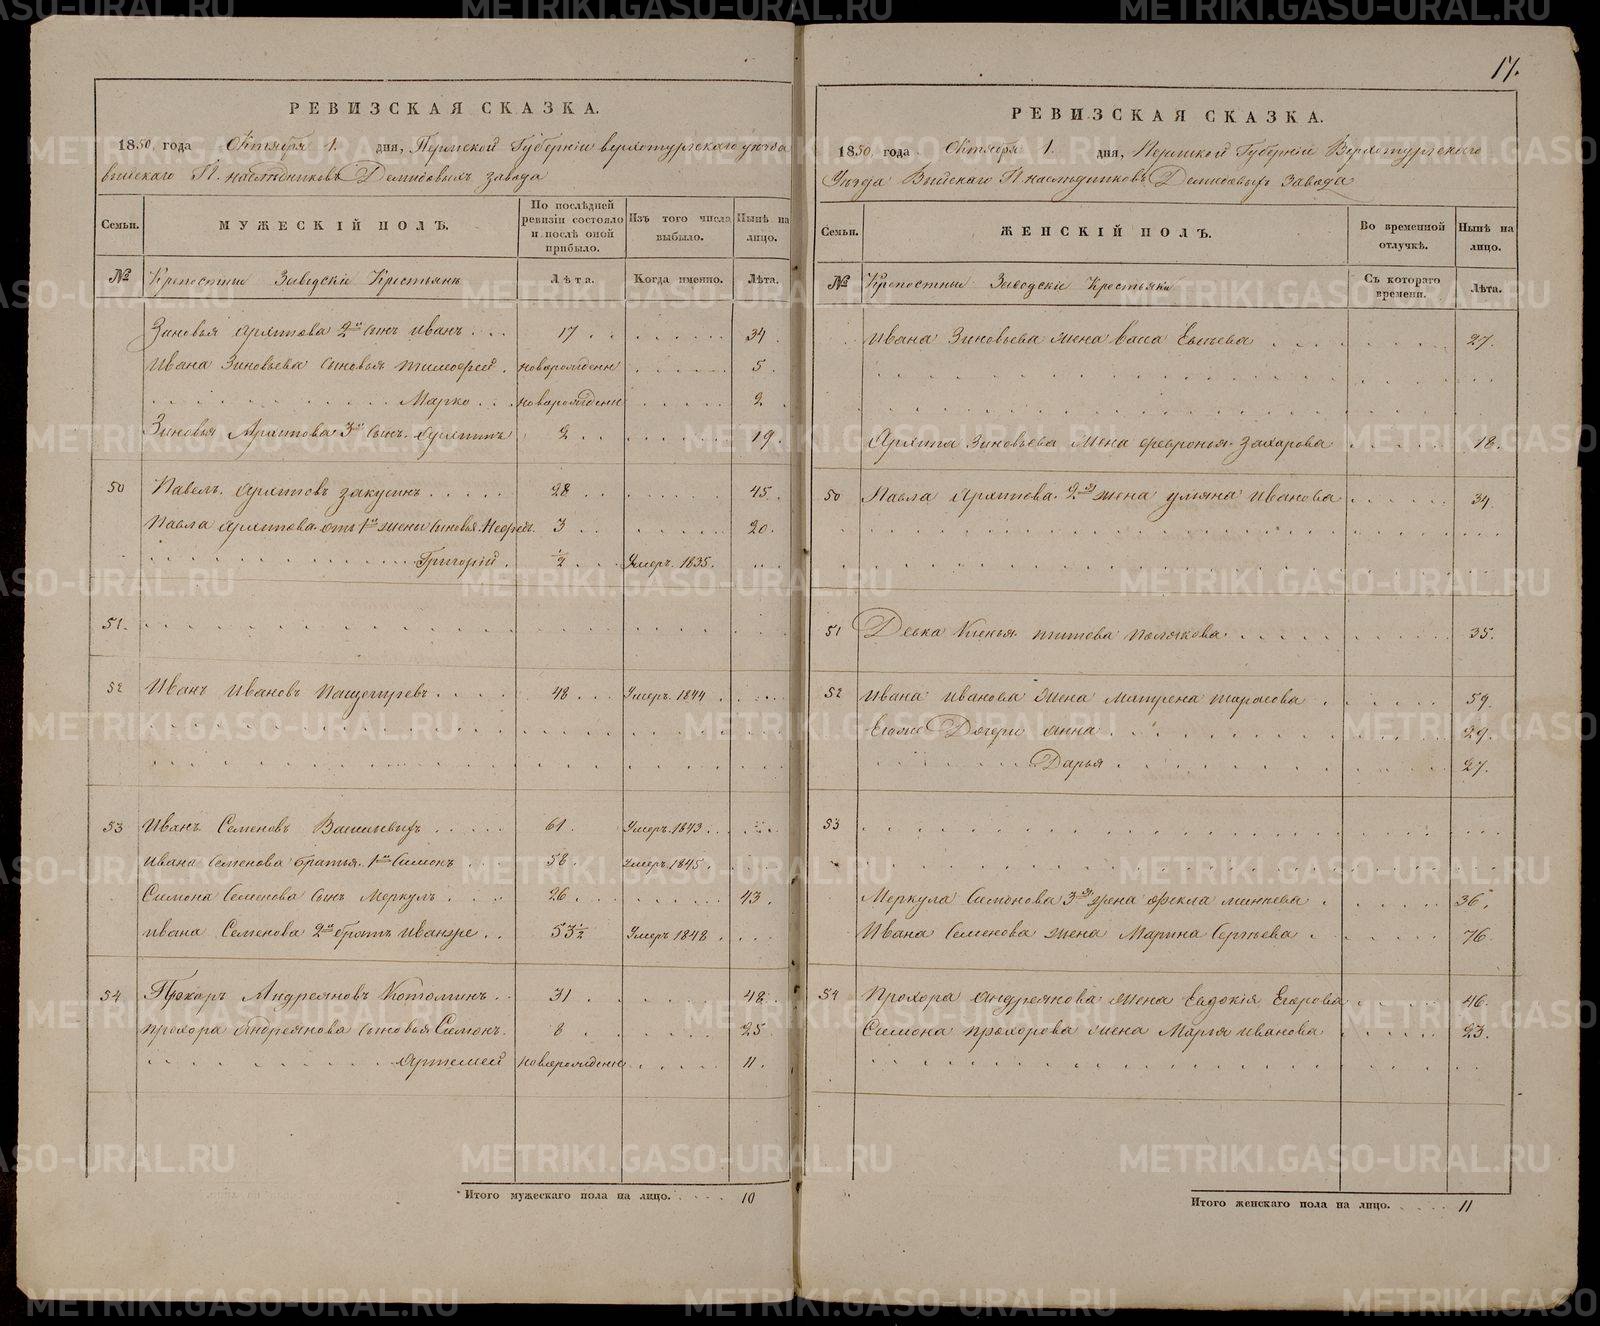 17.
РЕВИЗСКАЯ СКАЗКА.
1850, года Октября 1. дня, Пермской Губерніи верхотурскаго уезда
выйскаго Г.г. наследниковъ Демидовыхъ завода
Семьи.
МУЖЕСКІЙ ПОЛЪ.
По последней ревизіи состояло и после оной прибыло.
Изъ того числа выбыло.
Ныне на лицо.
№ Крепостные Заводскіе Крестьяне Лѣта. Когда именно. Лѣта.
Зиновья Архипова 2й сынъ Иванъ 17 34
Ивана Зиновьева сыновья Тимофей новорожденн 5
Марко новорожденн 2
Зиновья Архипова 3й сынъ Архипъ 2 19
50 Павелъ Архиповъ Закусинъ 28 45
Павла Архипова отъ 1й жены сыновья Нефедъ 3 20
Григорій ½ Умеръ 1835.
51.
52 Иванъ Ивановъ 48 Умеръ 1844
53 Иванъ Семеновъ 61 Умеръ 1843
Ивана Семенова братья 1й Симонъ 58 Умеръ 1845
Симона Семенова сынъ Меркулъ 26 43
Ивана Семенова 2й братъ Иванже 53½ Умеръ 1848
54 Прохоръ Андреяновъ Котоминъ 31 48
Прохора Андреянова сыновья Симонъ 8 25
Артемей новорожденн 11
Итого мужескаго пола на лицо. 10
РЕВИЗСКАЯ СКАЗКА.
1850, года Октября 1. дня, Пермской Губерніи Верхотурскаго
Уезда Выйскаго Г.г. наследниковъ Демидовыхъ Завода
Семьи.
ЖЕНСКІЙ ПОЛЪ.
Во временной отлучкѣ.
Нынѣ на лицо.
№ Крепостные Заводскіе Крестьянки Съ котораго времени. Лѣта.
Ивана Зиновьева жена Васса 27.
Архипа Зиновьева жена Февронья Захарова 18.
50 Павла Архипова 2я жена Ульяна Иванова 34
51 Девка Ксенья Титова Полякова 35.
52 Ивана Иванова жена Матрена Тарасова 59.
Егоже Дочери Анна 29.
Дарья 27.
53
Меркула Симонова 3я жена Фекла 36.
Ивана Семенова жена Марина Сергеева 76.
54 Прохора Андреянова жена Евдокія Егорова 46.
Симона Прохорова жена Марья Иванова 23.
Итого женскаго пола на лицо. 11
METRIKI.GASO-URAL.RU